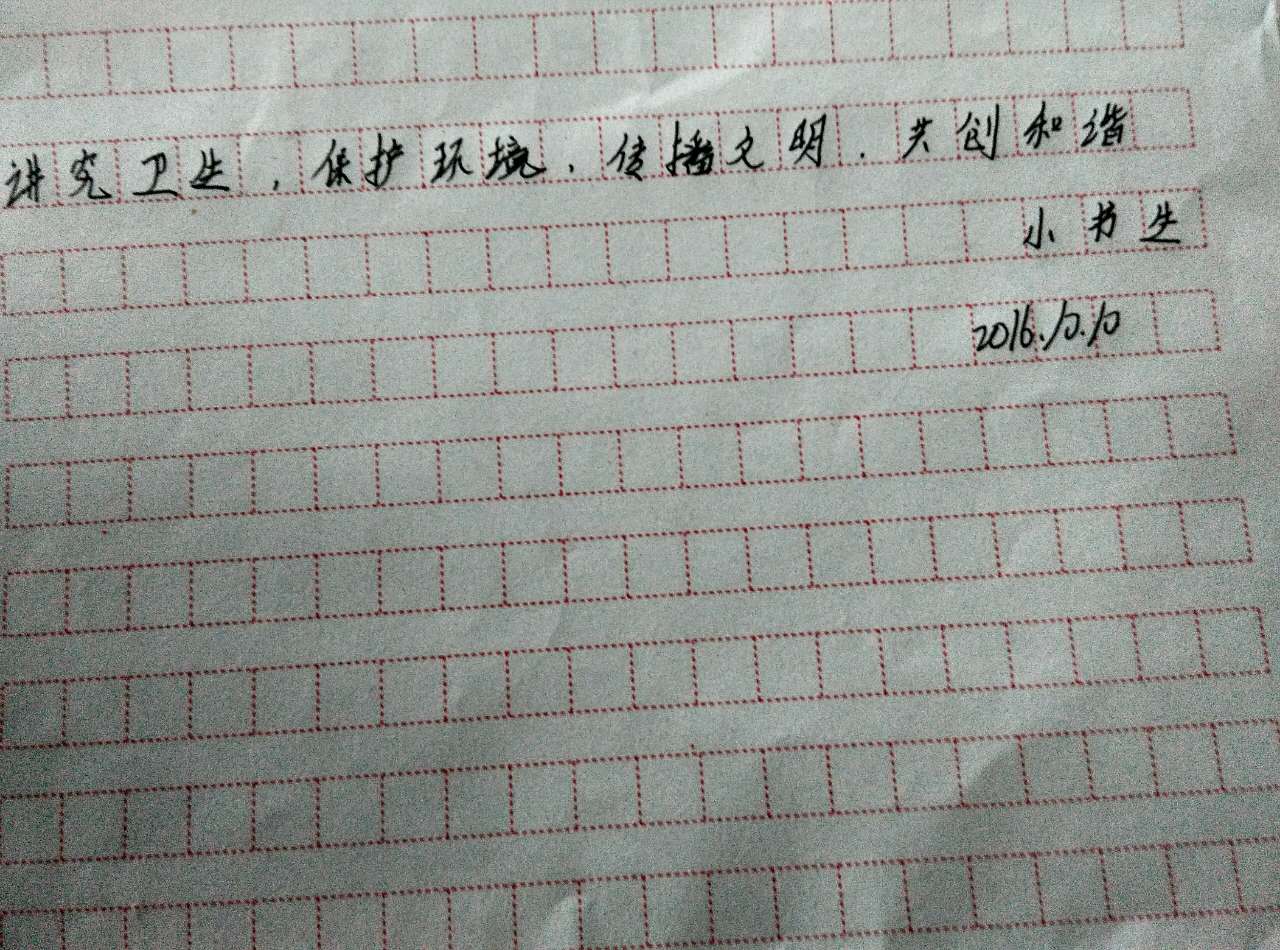 讲究卫生，保护环境，传播文明，共创和谐
小书生
2016.10.10